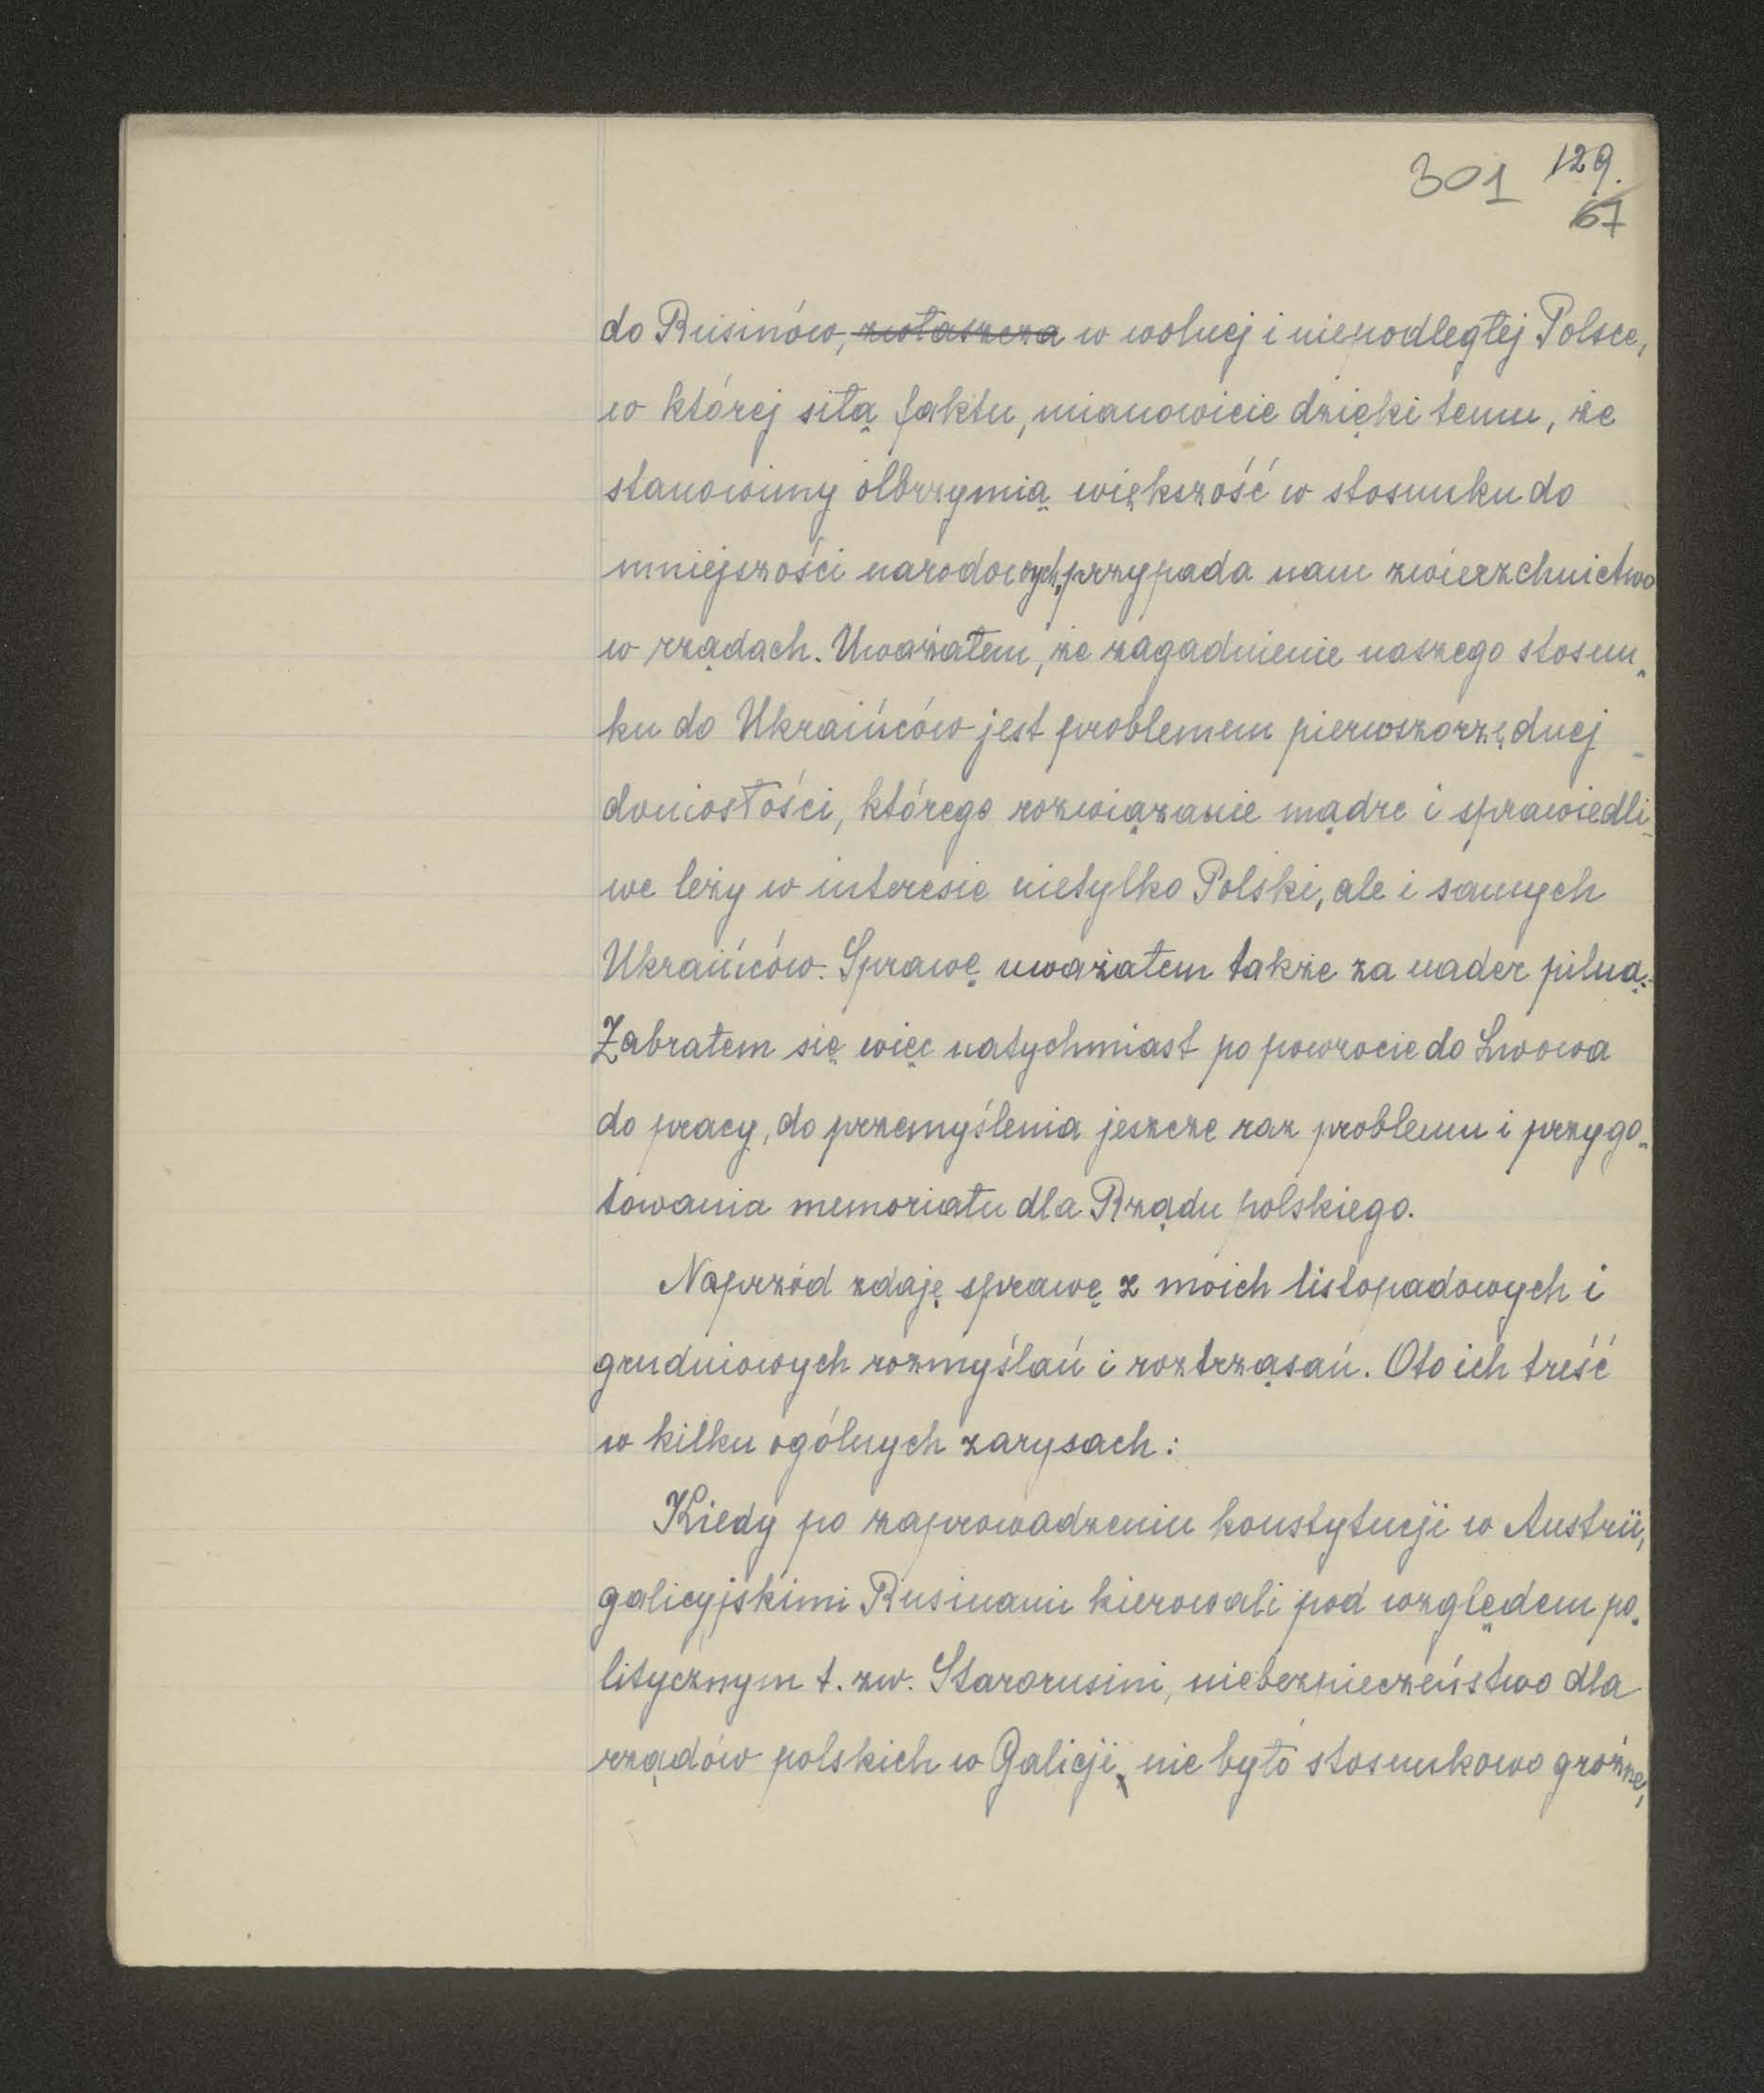 301 129.
67
do Rusinów, zwłaszcza w wolnej i niepodległej Polsce,
w której siłą faktu, mianowicie dzięki temu, że
stanowimy olbrzymią większość w stosunku do
mniejszości narodowych, przypada nam zwierzchnictwo
w rządach. Uważałem, że zagadnienie naszego stosun-
ku do Ukraińców jest problemem pierwszorzędnej
doniosłości, którego rozwiązanie mądre i sprawiedli-
we leży w interesie nietylko Polski, ale i samych
Ukraińców. Sprawę uważałem także za nader pilną.
Zabrałem się więc natychmiast po powrocie do Lwowa
do pracy, do przemyślenia jeszcze raz problemu i przygo-
towania memoriału dla Rządu polskiego.
Naprzód zdaję sprawę z moich listopadowych i
grudniowych rozmyślań i roztrząsań. Oto ich treść
w kilku ogólnych zarysach:
Kiedy po zaprowadzeniu konstytucji w Austrii,
galicyjskimi Rusinami kierowali pod względem po-
litycznym t. zw. Starorusini, niebezpieczeństwo dla
rządów polskich w Galicji, nie było stosunkowo groźne,